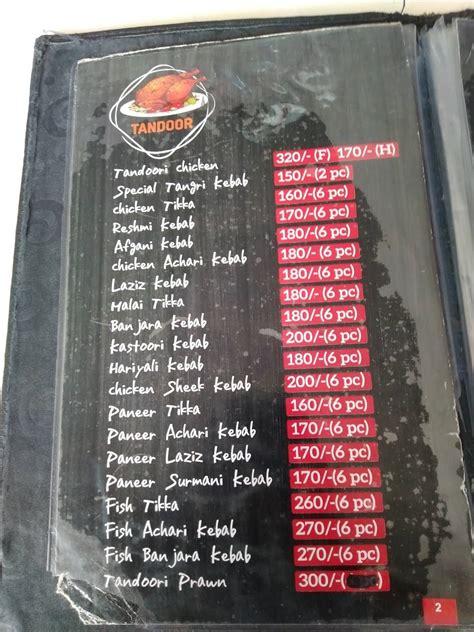 TANDOOR
Tandoori chicken 320/- (F) 170/- (H)
Special Tangri Kebab 150/- (2 pc)
chicken Tikka 160/-(6 pc)
Reshmi Kebab 170/-(6 pc)
Afgani Kebab 180/-(6 pc)
chicken Achari Kebab 180/- (6 pc)
Laziz Kebab 180/-(6 pc)
Malai Tikka 180/- (6 pc)
Banjara Kebab 180/-(6 pc)
Kastoori Kebab 200/-(6 pc)
Hariyali Kebab 180/-(6 pc)
chicken Sheek Kebab 200/-(6 pc)
Paneer Tikka 160/-(6 pc)
Paneer Achari Kebab 170/-(6 pc)
Paneer Laziz Kebab 170/-(6 pc)
Paneer Surmani Kebab 170/-(6 pc)
Fish Tikka 260/-(6 pc)
Fish Achari Kebab 270/-(6 pc)
Fish Banjara Kebab 270/-(6 pc)
Tandoori Prawn 300/-( )
2